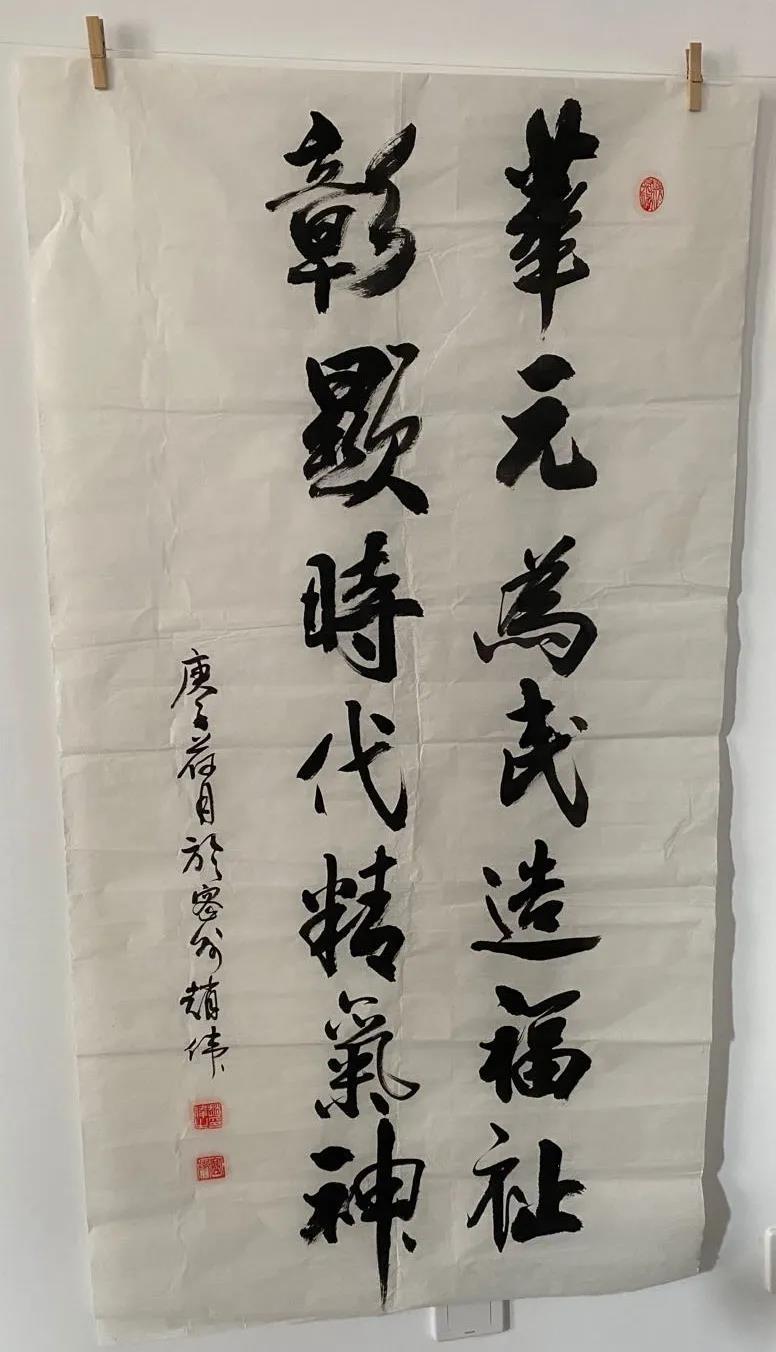 華元為民造福祉
彰顯時代精氣神
庚子荷月於密州趙伟